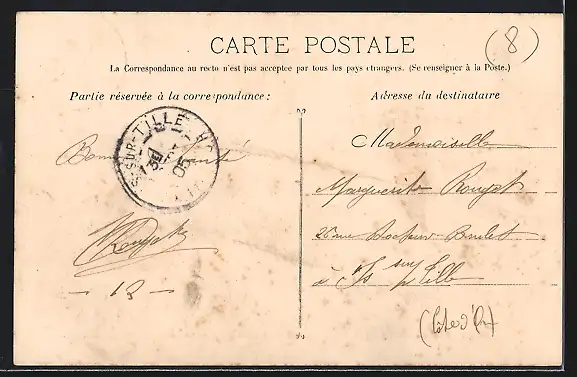 (8)
CARTE POSTALE
La Correspondance au recto n'est pas acceptée par tous les pays étrangers. (Se renseigner à la Poste.)
Partie réservée à la correspondance :
Adresse du destinataire
S-SUR-TILLE
05
Bonne Santé
Rouget
- 13 -
Mademoiselle
Marguerite Rouget
26 rue Docteur
à Is sur Tille
(Côte d'Or)